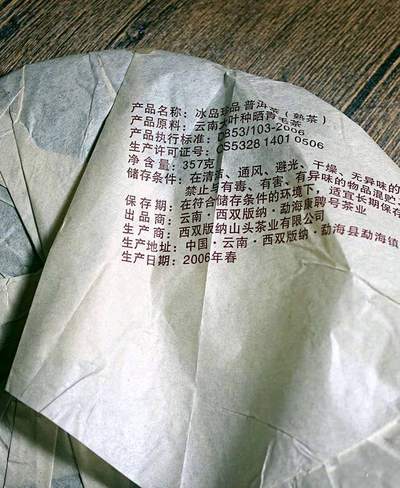 产品名称：冰岛珍品 普洱茶（熟茶）
产品原料：云南大叶种晒青毛茶
产品执行标准：DB53/103-2006
生产许可证号：QS5328 1401 0506
净 含 量：357克
储存条件：在清洁、通风、避光、干燥、无异味的
禁止与有毒、有害、有异味的物品混贮、
保 存 期：在符合储存条件的环境下，适宜长期保存
出 品 商：云南·西双版纳·勐海康聘号茶业
生 产 商：西双版纳山头茶业有限公司
生产地址：中国·云南·西双版纳·勐海县勐海镇
生产日期：2006年春